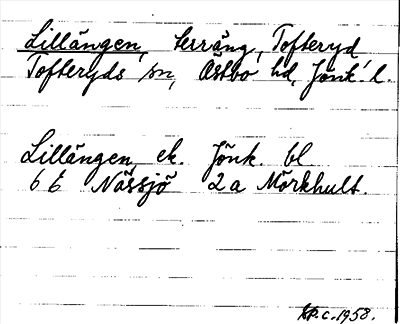 Lillängen, terräng, Tofteryd
Tofteryds sn, Östbo hd, Jönk. l.
Lillängen ek. Jönk. bl
6 E Nässjö 2 a Mörkhult.
P. c. 1958.